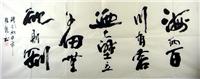 海纳百
川有容
迺大壁立
千仞無
欲则刚